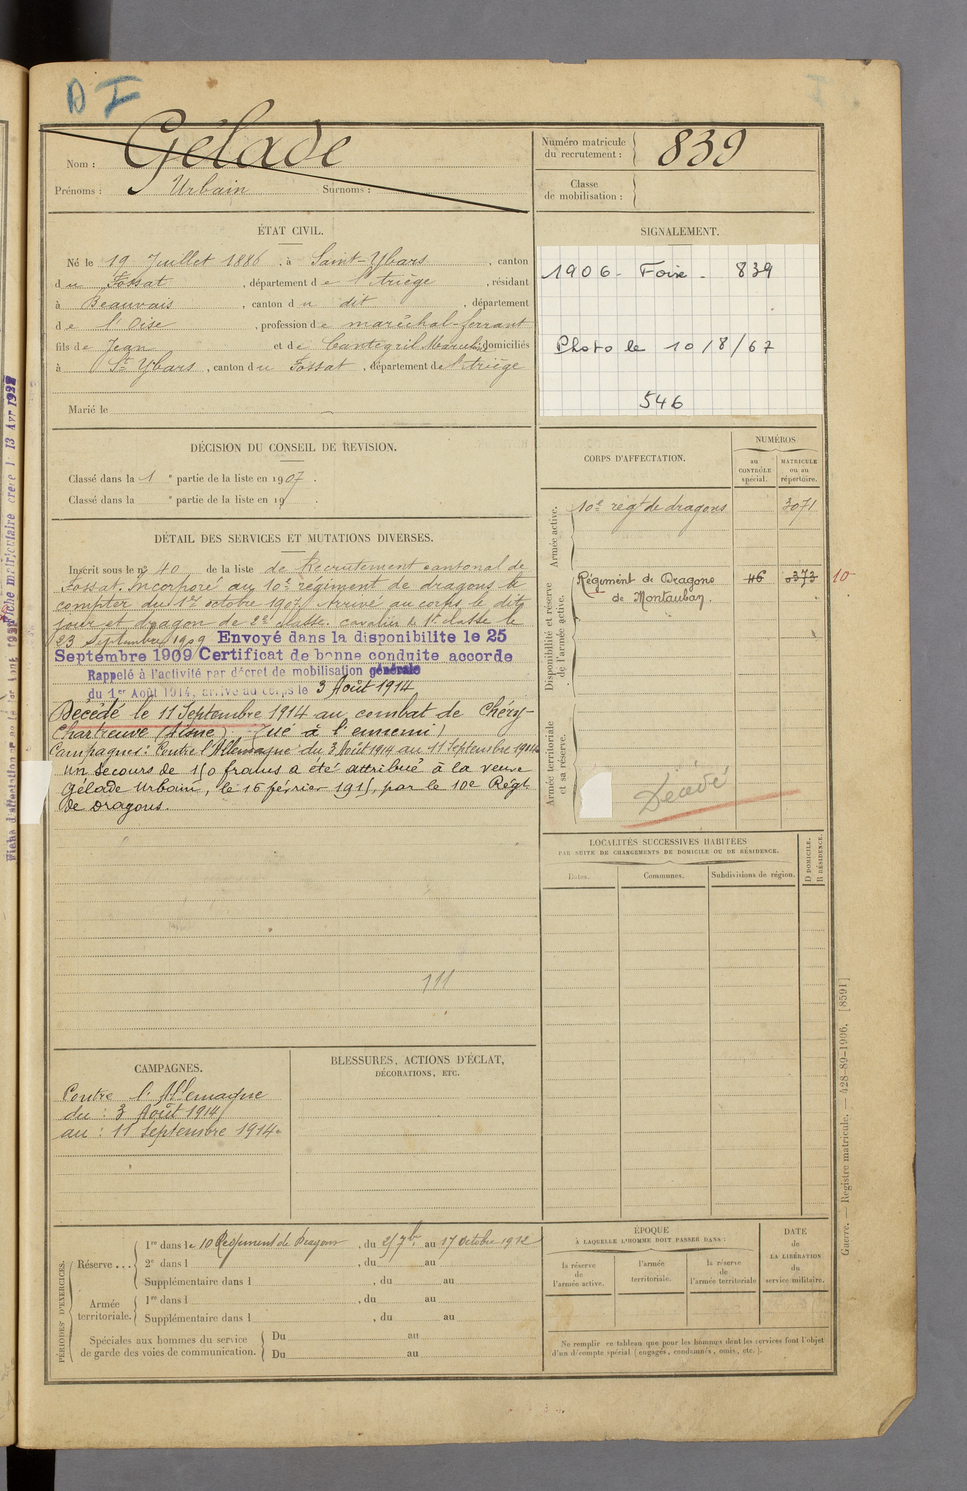 D I
Nom : Gélade
Prénoms : Urbain Surnoms :
Numéro matricule du recrutement : 839
Classe de mobilisation :
ÉTAT CIVIL.
Né le 19 Juillet 1886, à Saint-Ybars, canton
du Fossat, département de l'Ariège, résidant
à Beauvais, canton du dit, département
de l'Oise, profession de maréchal-ferrant
fils de Jean et de Cantegril domiciliés
à St Ybars, canton du Fossat, département de l'Ariège
Marié le
SIGNALEMENT.
1906 - Foix - 839
Photo le 10/8/67
546
DÉCISION DU CONSEIL DE REVISION.
Classé dans la 1 e partie de la liste en 1907.
Classé dans la e partie de la liste en 19 .
DÉTAIL DES SERVICES ET MUTATIONS DIVERSES.
Inscrit sous le no 40 de la liste de Recrutement cantonal de
Fossat. Incorporé au 10e régiment de dragons à
compter du 1er octobre 1907. Arrivé au corps le dit
jour et dragon de 2e classe. cavalier de 1e classe le
23 Septembre 1909 Envoyé dans la disponibilite le 25
Septembre 1909 Certificat de bonne conduite accorde
Rappelé à l'activité par décret de mobilisation générale
du 1er Août 1914, arrivé au corps le 3 Août 1914
Décédé le 11 Septembre 1914 au combat de Chéry-
Chartreuve (Aisne), Tué à l'ennemi)
Campagnes : Contre l'Allemagne du 3 Août 1914 au 11 Septembre 1914
Un secours de 150 francs a été attribué à la veuve
Gélade Urbain, le 16 février 1915, par le 10e Régt
de Dragons.
111
CORPS D'AFFECTATION.
NUMÉROS
au CONTRÔLE spécial.
MATRICULE ou au répertoire.
Armée active.
10e régt de dragons 3071
Disponibilité et réserve de l'armée active.
Régiment de Dragons 46 0373 10
de Montauban.
Armée territoriale et sa réserve.
Décédé
LOCALITÉS SUCCESSIVES HABITÉES
PAR SUITE DE CHANGEMENTS DE DOMICILE OU DE RÉSIDENCE.
Dates. Communes. Subdivisions de région. D DOMICILE. R RÉSIDENCE.
CAMPAGNES.
Contre l'Allemagne
du : 3 Août 1914
au : 11 Septembre 1914
BLESSURES, ACTIONS D'ÉCLAT,
DÉCORATIONS, ETC.
PÉRIODES D'EXERCICES.
Réserve ...
1re dans le 10 Régiment de Dragons, du 25 7bre au 17 Octobre 1912
2e dans l , du au
Supplémentaire dans l , du au
Armée territoriale.
1re dans l , du au
Supplémentaire dans l , du au
Spéciales aux hommes du service de garde des voies de communication.
Du au
Du au
ÉPOQUE
À LAQUELLE L'HOMME DOIT PASSER DANS :
la réserve de l'armée active.
l'armée territoriale.
la réserve de l'armée territoriale
DATE de LA LIBÉRATION du service militaire.
Ne remplir ce tableau que pour les hommes dont les services font l'objet
d'un décompte spécial (engagés, condamnés, omis, etc.).
Guerre. — Registre matricule. — 428-89-1906. [8591]